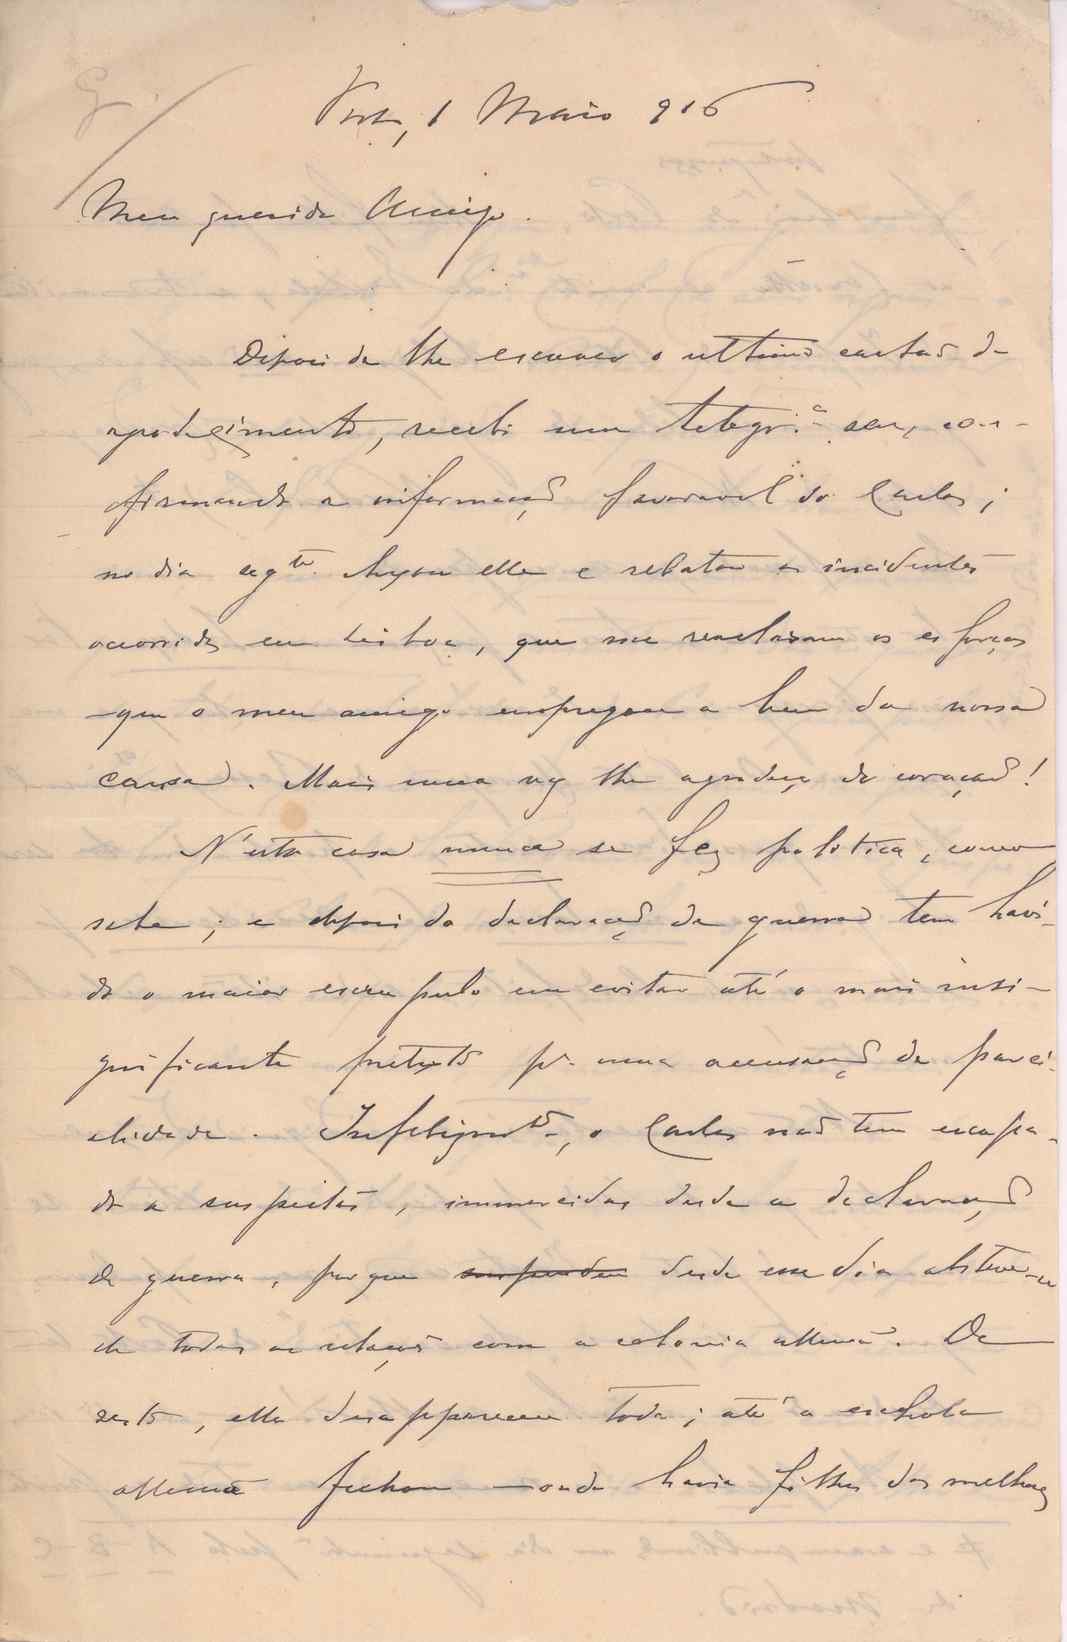 Porto, 1 Maio 916
Meu querido Amigo.
Depois de lhe escrever o ultimo cartão de
agradecimento, recebi um telegr.ª seu, con-
firmando a informação favoravel do Carlos;
no dia segte. chegou elle e relatou os incidentes
occorridos em Lisboa, que me revelaram os esforços
que o meu amigo empregou a bem da nossa
causa. Mais uma vez lhe agradeço do coração!
N'esta casa nunca se fez politica, como
sabe; e depois da declaração de guerra tem havi-
do o maior escrupulo em evitar até o mais insi-
gnificante pretexto pª uma accusação de parci-
alidade. Infelizmte, o Carlos não tem escapa-
do a suspeitas, immerecidas desde a declaração
de guerra, porque suspendeu desde esse dia absteve-se
de todas as relações com a colonia allemã. De
resto, ella desappareceu toda; até a eschola
allemã fechou — onde havia filhos das melhores